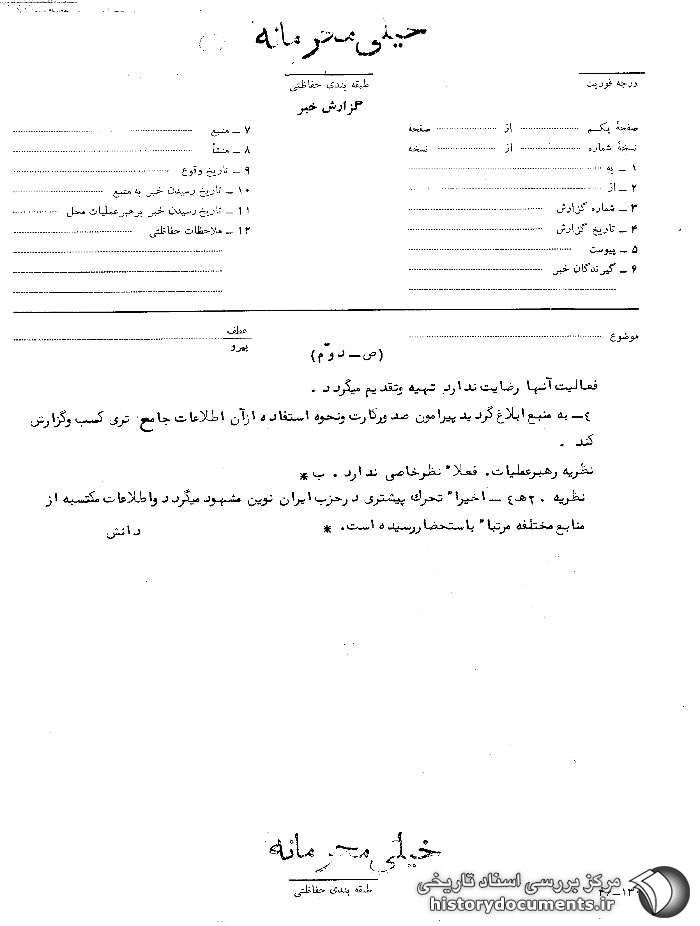 خیلی محرمانه
طبقه بندی حفاظتی
درجه فوریت
گزارش خبر
صفحهٔ یکم از صفحه
نسخهٔ شماره از نسخه
۱ ـ به
۲ ـ از
۳ ـ شماره گزارش
۴ ـ تاریخ گزارش
۵ ـ پیوست
۶ ـ گیرندگان خبر
۷ ـ منبع
۸ ـ منشأ
۹ ـ تاریخ وقوع
۱۰ ـ تاریخ رسیدن خبر به منبع
۱۱ ـ تاریخ رسیدن خبر برهبر عملیات محل
۱۲ ـ ملاحظات حفاظتی
موضوع
عطف
پیرو
(ص ـ دوّم)
فعالیت آنها رضایت ندارد تهیه وتقدیم میگردد .
٤ـ به منبع ابلاغ گردید پیرامون صدورکارت ونحوه استفاده ازآن اطلاعات جامع تری کسب وگزارش
کند .
نظریه رهبرعملیات. فعلاً نظرخاصی ندارد . ب*
نظریه ۲۰هـ٤ ـ اخیراً تحرك بیشتری درحزب ایران نوین مشهود میگردد واطلاعات مکتسبه از
منابع مختلفه مرتباً باستحضاررسیده است. *
دانش
خیلی محرمانه
طبقه بندی حفاظتی
مرکز بررسی اسناد تاریخی
historydocuments.ir